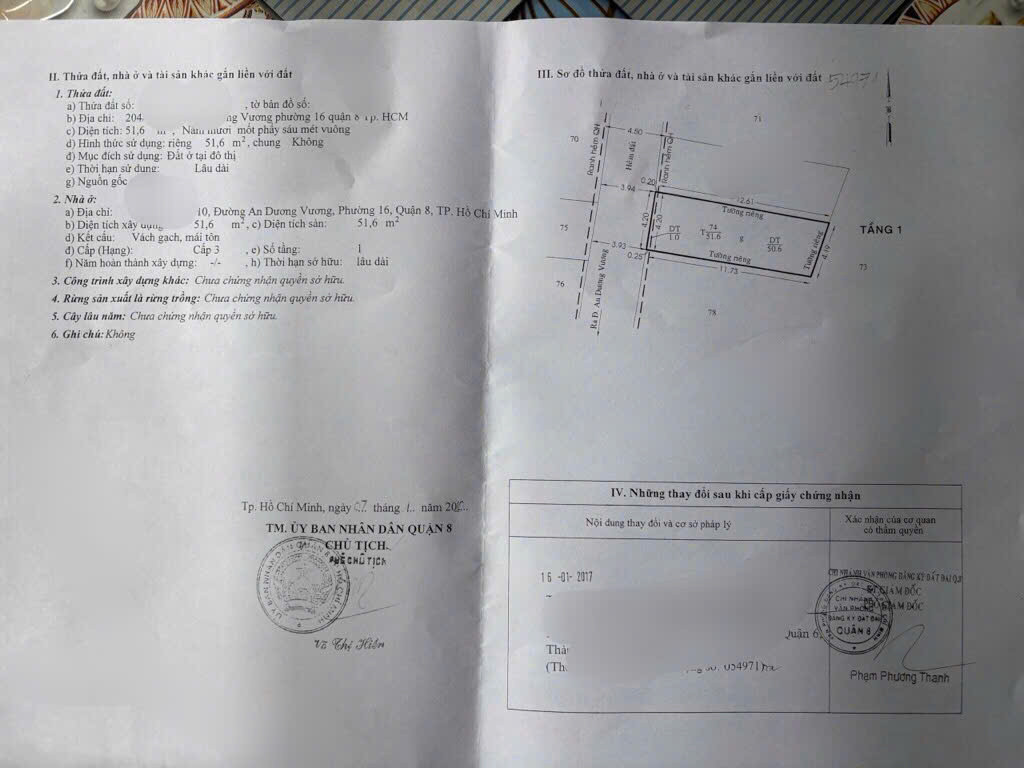 II. Thửa đất, nhà ở và tài sản khác gắn liền với đất
1. Thửa đất:
a) Thửa đất số: , tờ bản đồ số:
b) Địa chỉ: 204. ng Vương phường 16 quận 8 Tp. HCM
c) Diện tích: 51,6 m , Năm mươi mốt phẩy sáu mét vuông
d) Hình thức sử dụng: riêng 51,6 m², chung Không
đ) Mục đích sử dụng: Đất ở tại đô thị
e) Thời hạn sử dụng: Lâu dài
g) Nguồn gốc
2. Nhà ở:
a) Địa chỉ: 10, Đường An Dương Vương, Phường 16, Quận 8, TP. Hồ Chí Minh
b) Diện tích xây dựng 51,6 m², c) Diện tích sàn: 51,6 m²
d) Kết cấu: Vách gạch, mái tôn
đ) Cấp (Hạng): Cấp 3 , e) Số tầng: 1
f) Năm hoàn thành xây dựng: -/- , h) Thời hạn sở hữu: lâu dài
3. Công trình xây dựng khác: Chưa chứng nhận quyền sở hữu.
4. Rừng sản xuất là rừng trồng: Chưa chứng nhận quyền sở hữu.
5. Cây lâu năm: Chưa chứng nhận quyền sở hữu.
6. Ghi chú: Không
Tp. Hồ Chí Minh, ngày 07 tháng năm 20
TM. ỦY BAN NHÂN DÂN QUẬN 8
CHỦ TỊCH
PHÓ CHỦ TỊCH
III. Sơ đồ thửa đất, nhà ở và tài sản khác gắn liền với đất
71
70
4.80
Ranh hẻm QH
Hẻm đất
Ranh hẻm QH
0.20
3.94
12.61
Tường riêng
75
4.20
4.20
DT
1.0
T 74
51.6
g
DT
50.6
Tường riêng
4.19
TẦNG 1
3.93
0.25
Tường riêng
11.73
73
76
78
Ra Đ. An Dương Vương
IV. Những thay đổi sau khi cấp giấy chứng nhận
Nội dung thay đổi và cơ sở pháp lý
Xác nhận của cơ quan
có thẩm quyền
16 -01- 2017
CHI NHÁNH VĂN PHÒNG ĐĂNG KÝ ĐẤT ĐAI Q.8
GIÁM ĐỐC
PHÓ GIÁM ĐỐC
CHI NHÁNH
VĂN PHÒNG
ĐĂNG KÝ ĐẤT ĐAI
QUẬN 8
Quận 6,
Thàn
(Th 034971)
Phạm Phương Thanh